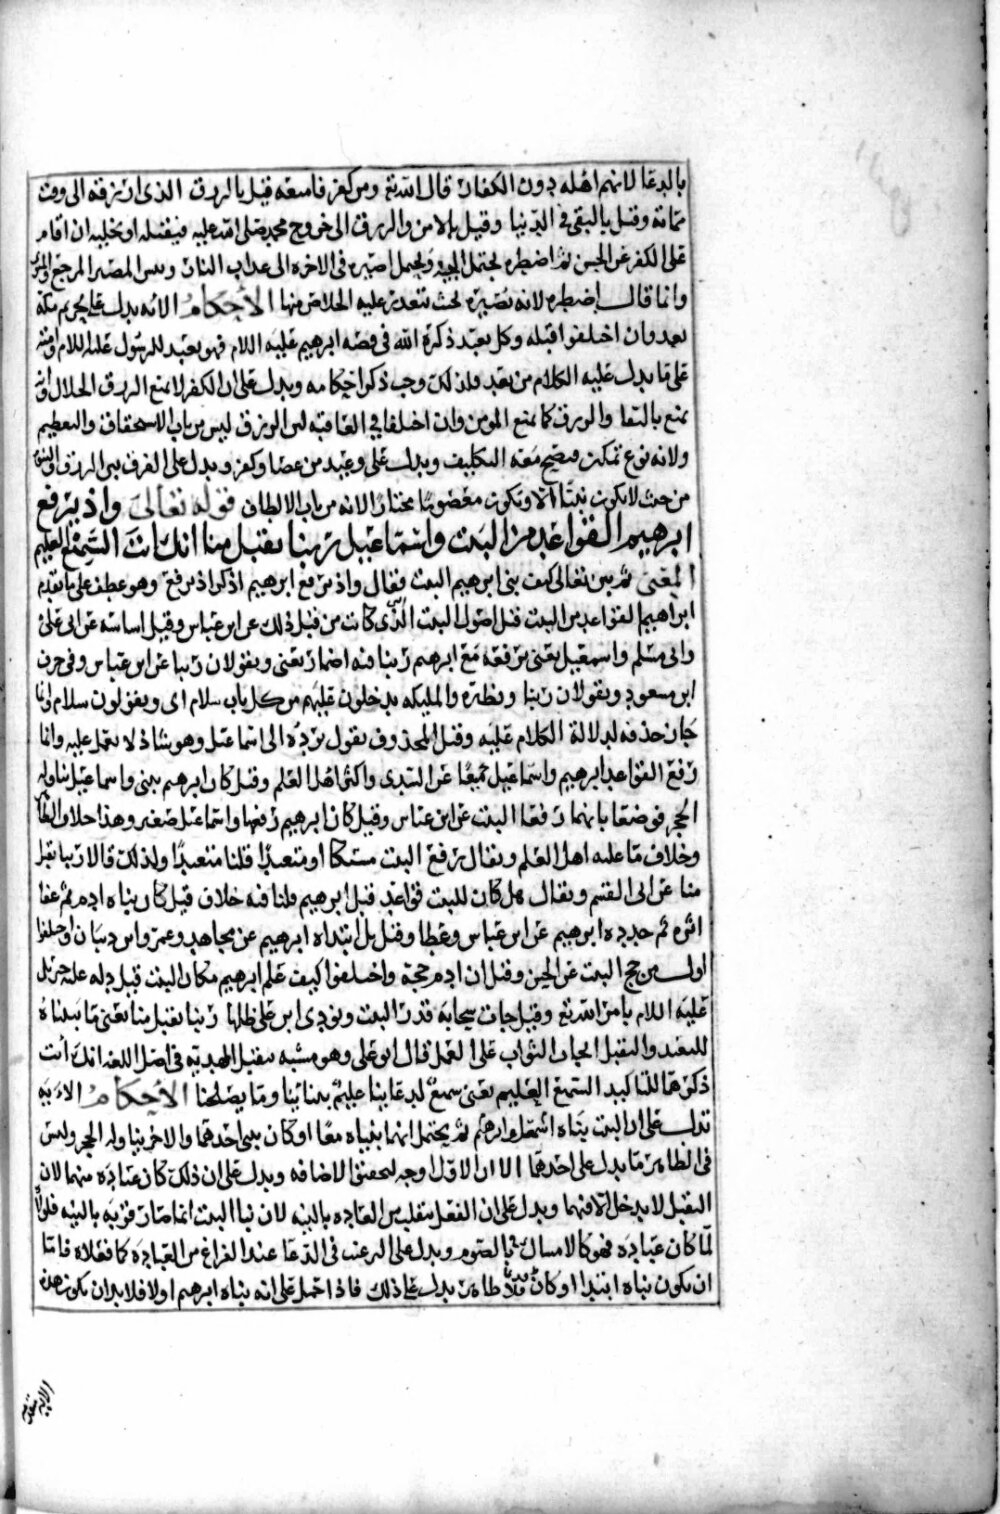 بالدعا لانهم اهله دون الكفار قال الله تع ومن كفر فامتعه قيل بالرزق الذى ارزقه الى وقت
مماته وقيل بالبقى فى الدنيا وقيل بالامن والرزق الى خروج محمد صلى الله عليه فيقتله او يخليه ان اقام
على الكفر عن الحسن ثم اضطره يحتمل ويحتمل اصيره فى الاخره الى عذاب النار وبيس المصير المرجع
وانما قال اضطره لانه يصيره بحيث يتعذر عليه الخلاص منها الأحكام الآيه يدل على تحريم مكه
بعد وان اختلفوا قبله وكل تعبد ذكره الله فى قصه ابرهيم عليه السلام فهو تعبد للرسول عليه السلام وامته
على ما يدل عليه الكلام من بعد فلذلك وجب ذكر احكامه ويدل على ان الكفر لا يمنع الرزق الحلال
يمنع بالبقا والرزق كما يمتع المومن وان اختلفا في العاقبه لان الرزق ليس من باب الاستحقاق والتعظيم
ولانه نوع تمكين فيصح معه التكليف ويدل على وعيد من عصا وكفر ويدل على الفرق بين الرزق
من حيث لا يكون نبيًا الا ويكون معصومًا مختارًا لانه من باب الالطاف قوله تعالى واذ يرفع
ابرهيم القواعد من البيت واسماعيل ربنا تقبل منا انك انت السميع العليم
المعنى ثم بين تعالى كيف بنى ابرهيم البيت فقال واذ يرفع ابرهيم اذكر اذ يرفع وهو عطف على ما تقدم
ابراهيم القواعد من البيت قيل اصول البيت التى كانت من قبل ذلك عن ابن عباس وقيل اساسه عن ابى على
وابى مسلم واسمعيل يعنى يرفعه مع ابرهيم ربنا فيه اضمار يعنى ويقولان ربنا عن ابن عباس وفى حرف
ابن مسعود ويقولان ربنا ونظيره والمليكه يدخلون عليهم من كل باب سلام اى ويقولون سلام وانما
جاز حذفه لدلالة الكلام عليه وقيل المحذوف يقول يرده الى اسماعيل وهو شاذ لا يعمل عليه وانما
رفع القواعد ابرهيم واسماعيل جميعًا عن السدى واكثر اهل العلم وقيل كان ابرهيم يبنى واسماعيل يناوله
الحجر فوصفا بانهما رفعا البيت عن ابن عباس وقيل كان ابرهيم رفعها واسماعيل صغير وهذا خلاف الظاهر
وخلاف ما عليه اهل العلم ويقال يرفع البيت مسكنا او متعبدًا قلنا متعبدًا ولذلك قالا ربنا تقبل
منا عن ابى القسم ويقال هل كان للبيت قواعد قبل ابرهيم قلنا فيه خلاف قيل كان بناه ادم ثم عفا
اثره ثم جدده ابرهيم عن ابن عباس وعطا وقيل بل ابتداه ابرهيم عن مجاهد وعمرو بن دينار واختلفوا
اول من حج البيت عن الحسن وقيل ان ادم حجه واختلفوا كيف علم ابرهيم مكان البيت قيل دله عليه جبريل
عليه السلام بامر الله تع وقيل جات سحابه قدر البيت ونودى ابن على ظلها ربنا تقبل منا يعنى ما بنيناه
للتعبد والتقبل ايجاب الثواب على العمل قال ابو على وهو مشبه بتقبل الهديه فى اصل اللغه انك انت
ذكرهما للتاكيد السميع العليم يعنى سميع لدعاينا عليم بنياتنا وما يصلحنا الأحكام الايه
تدل على ان البيت بناه اسمعيل وابرهيم ثم يحتمل انهما بنياه معًا او كان يبنى احدهما والاخر يناوله الحجر وليس
فى الظاهر ما يدل على احدهما الا ان الاول اوجه لتحقق الاضافه ويدل على ان ذلك كان عباده منهما لان
التقبل لا يدخل الا فيها ويدل على ان الفعل ينقلب من العاده بالنيه لان بنا البيت انما صار قربه بالنيه فلولا
لما كان عباده فهو كالامساك بالصوم ويدل على الترغيب فى الدعا عند الفراغ من العباده كما فعلاه فاما
ان يكون بناه ابتدا او كان فلا ظاهر يدل على ذلك فاذا احتمل على انه بناه ابرهيم اولا فلا بد ان يكون هذه